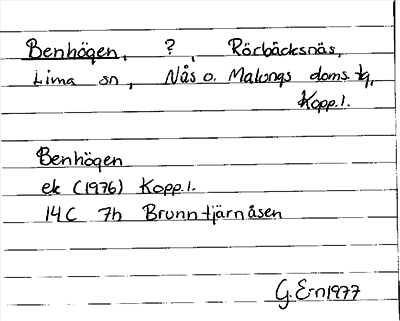 Benhögen, ?, Rörbäcksnäs,
Lima sn, Nås o. Malungs doms.tg,
Kopp.l.
Benhögen
ek (1976) Kopp.l.
14C 7h Brunntjärnåsen
G. E-n 1977